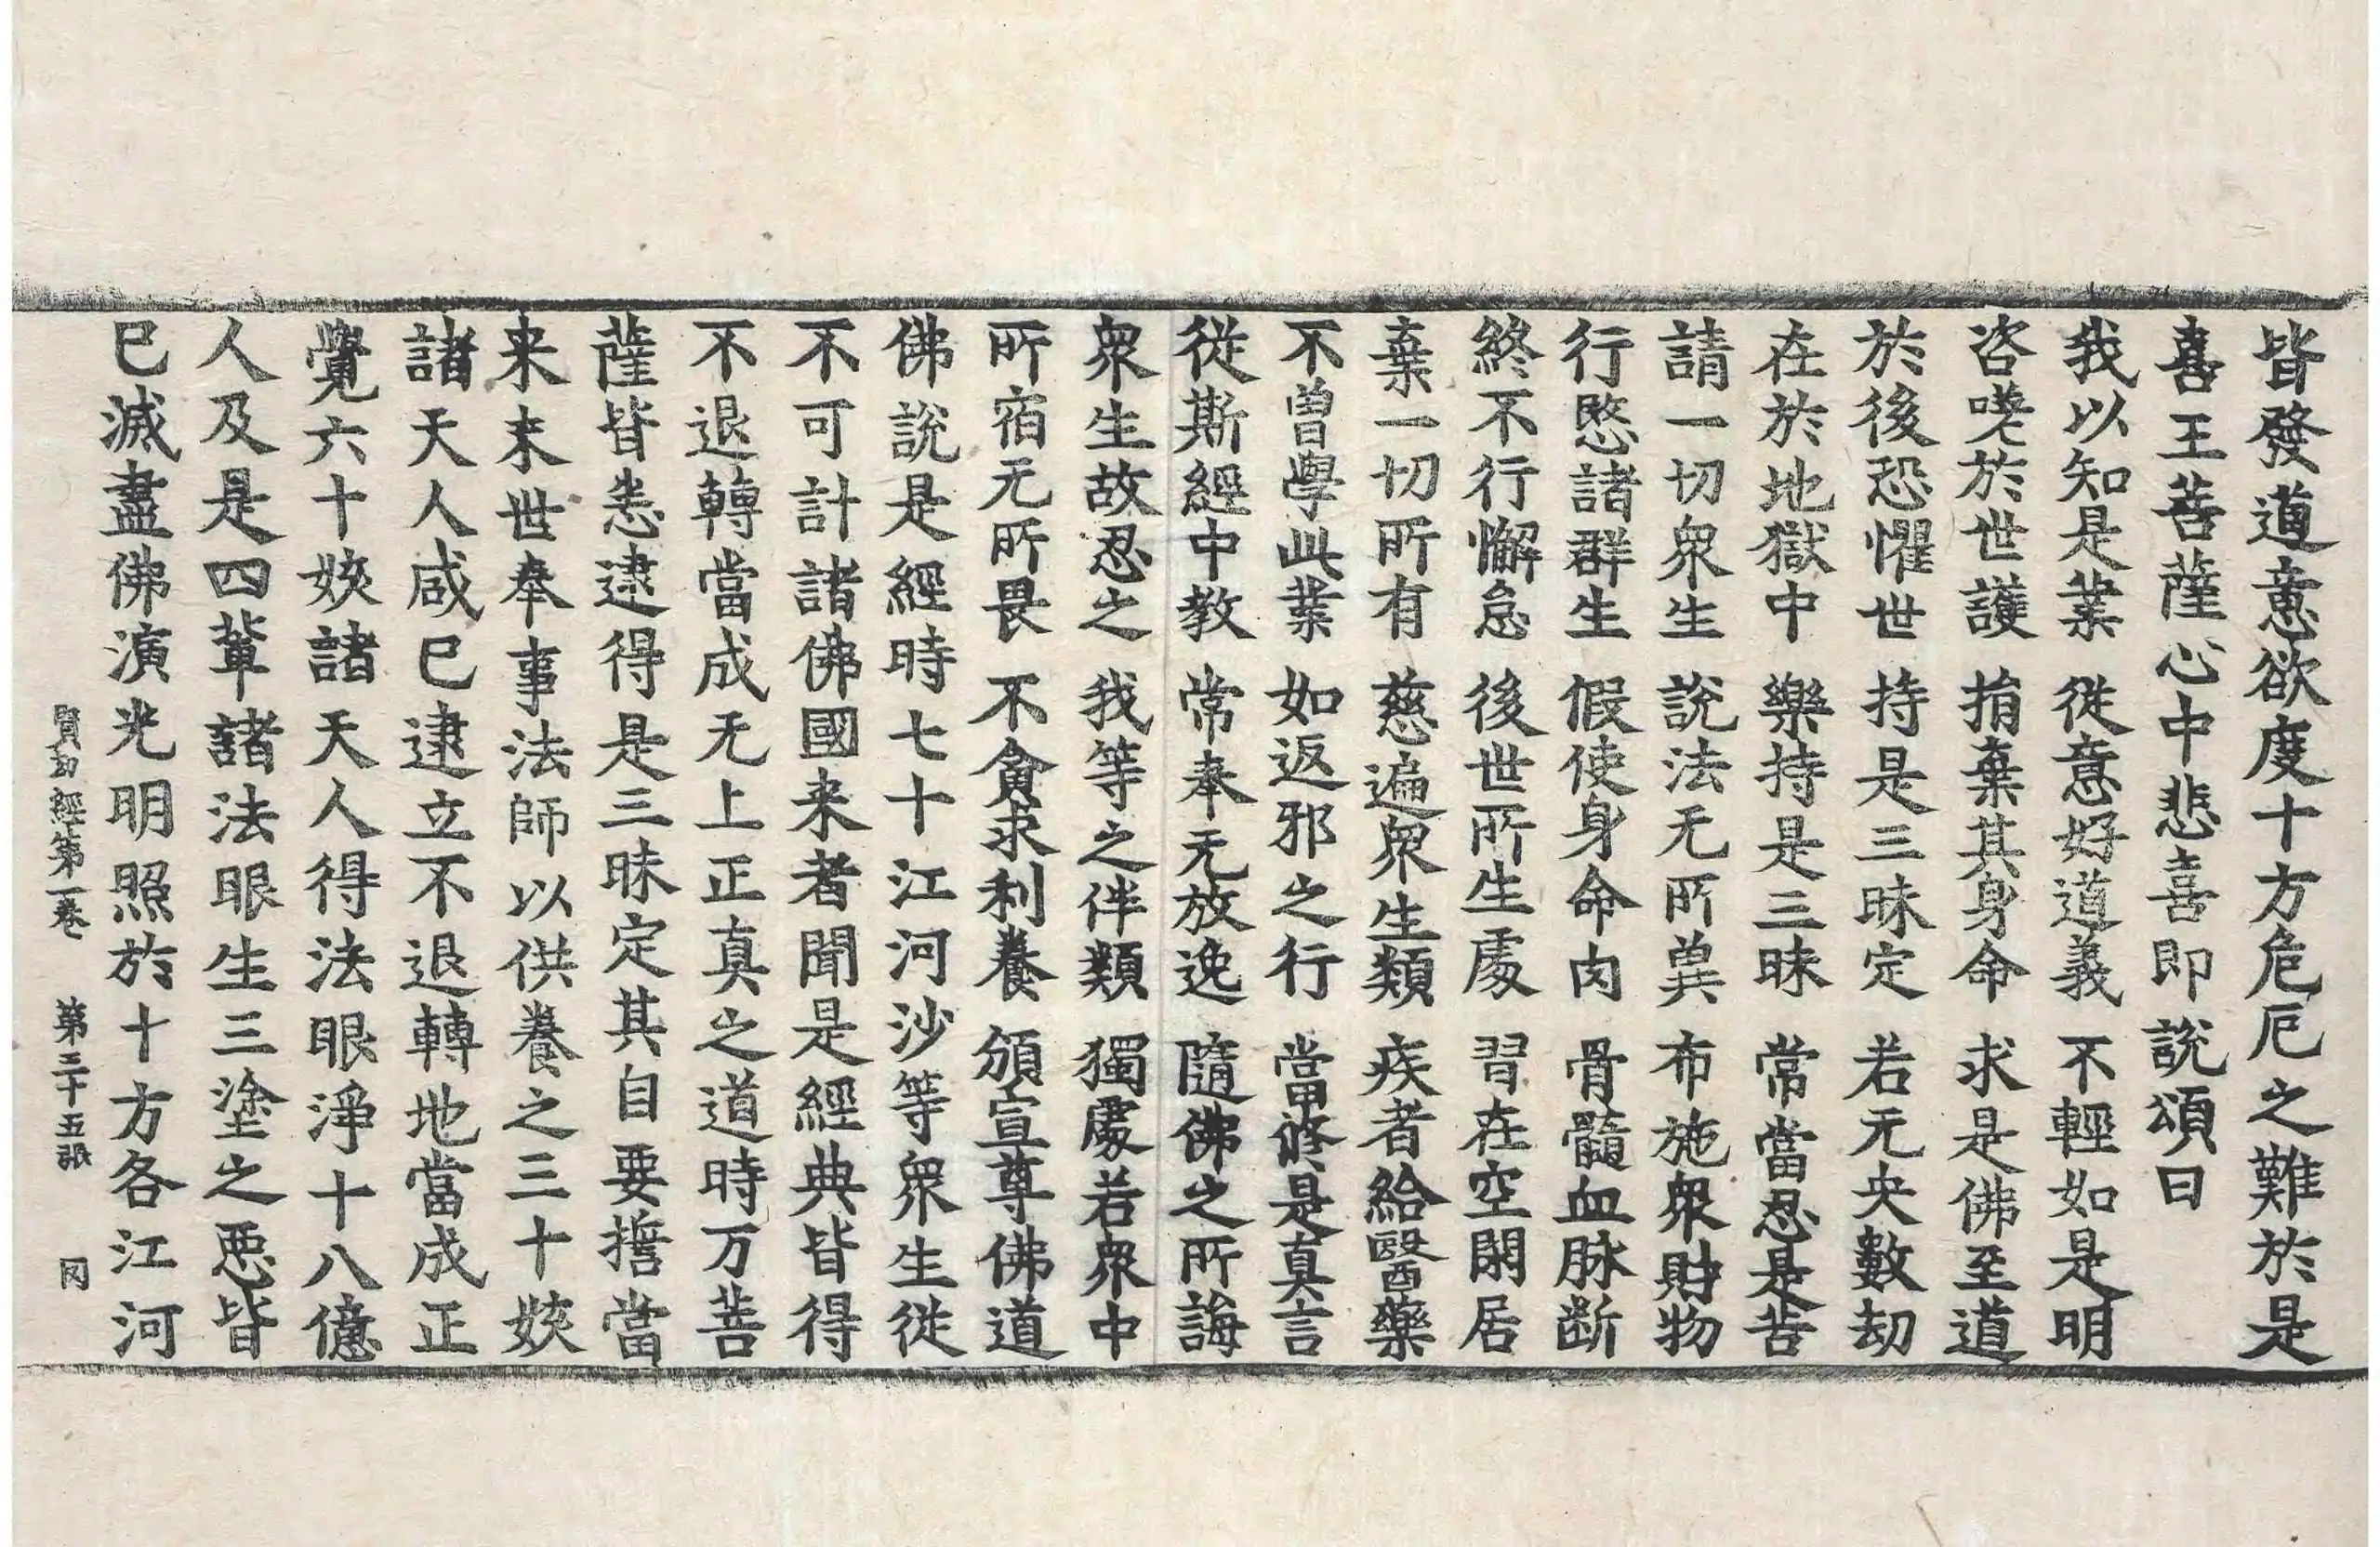 皆發道意欲度十方危厄之難於是
喜王菩薩心中悲喜即說頌曰
我以知是業 從意好道義 不輕如是明
咨嗟於世護 捐棄其身命 求是佛至道
於後恐懼世 持是三昧定 若无央數劫
在於地獄中 樂持是三昧 常當忍是苦
請一切衆生 說法无所兾 布施衆財物
行愍諸群生 假使身命肉 骨髓血脉斷
終不行懈怠 後世所生處 習在空閑居
棄一切所有 慈遍衆生類 疾者給醫藥
不曾學此業 如返邪之行 當修是真言
從斯經中教 常奉无放逸 隨佛之所誨
衆生故忍之 我等之伴類 獨處若衆中
所宿无所畏 不貪求利養 頒宣尊佛道
佛說是經時七十江河沙等衆生從
不可計諸佛國来者聞是經典皆得
不退轉當成无上正真之道時万菩
薩皆悉逮得是三昧定其自要誓當
来末世奉事法師以供養之三十姟
諸天人咸已逮立不退轉地當成正
覺六十姟諸天人得法眼淨十八億
人及是四輩諸法眼生三塗之惡皆
已滅盡佛演光明照於十方各江河
賢劫經第一卷 第三十五張 冈